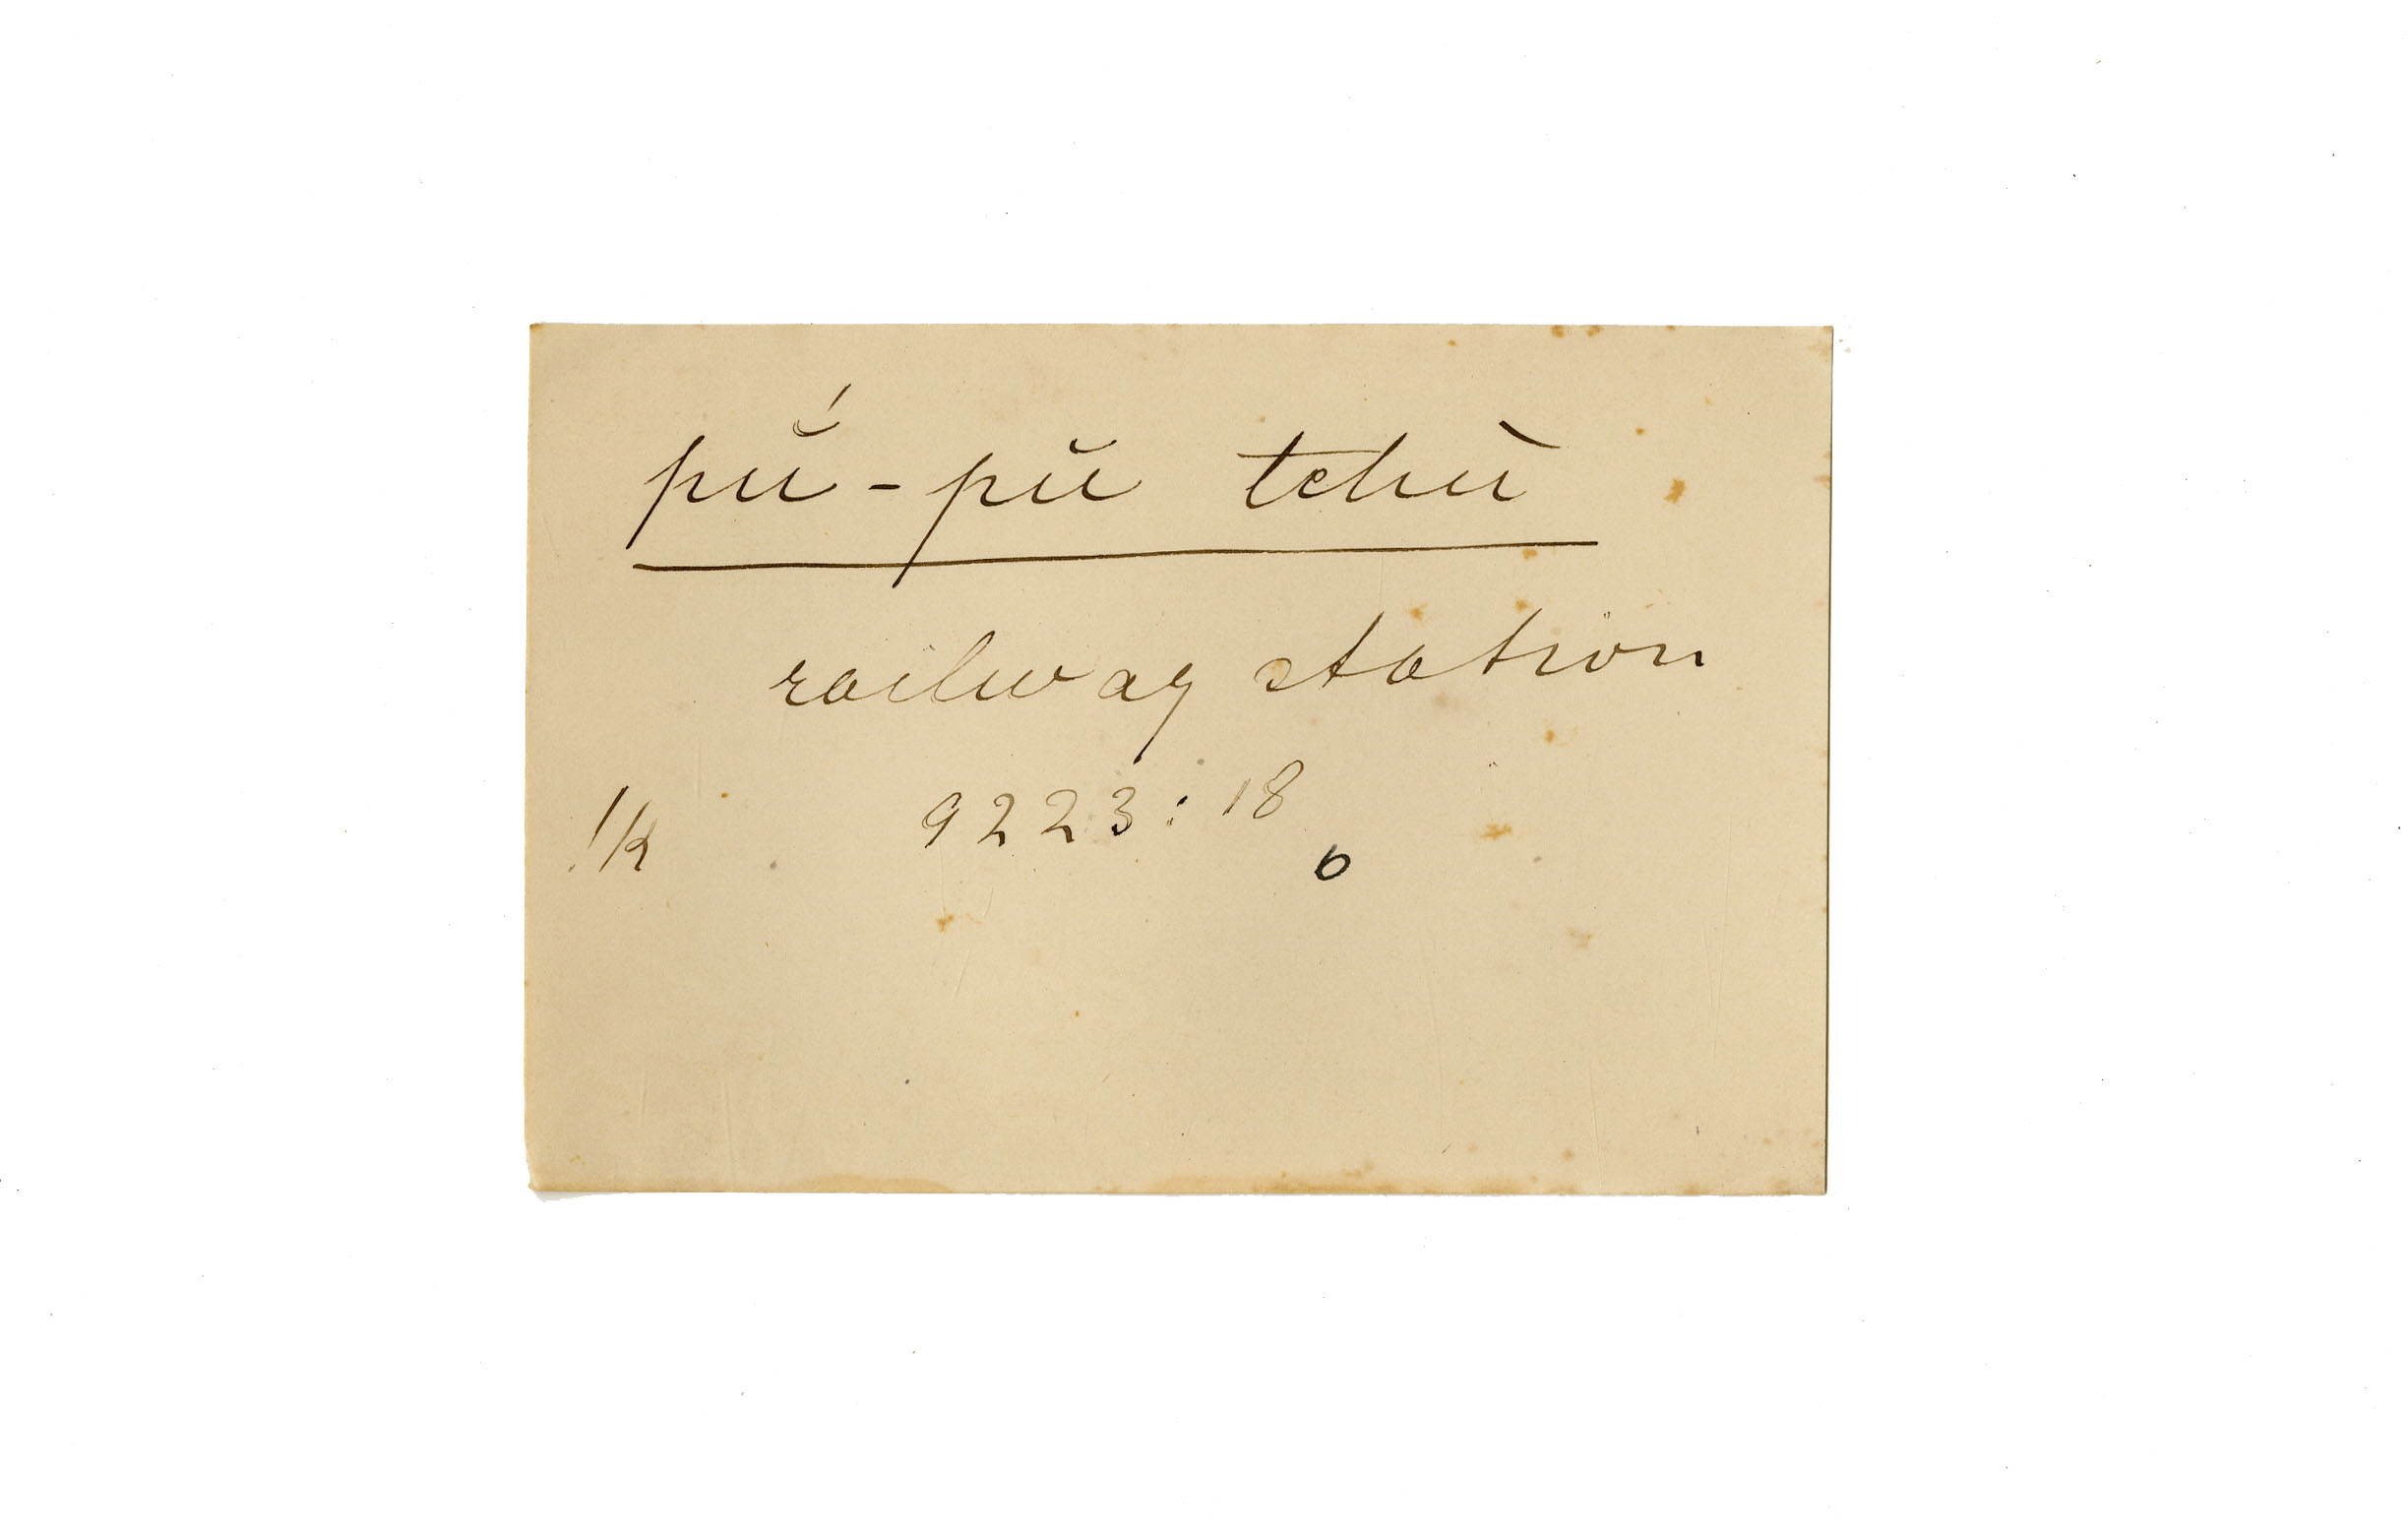 pŭ́-pŭ tchù
railway station
!k 9223:18
6